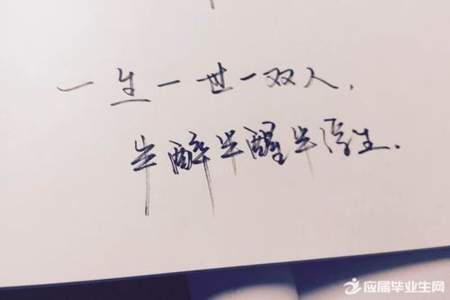 一生一世一双人，
半醉半醒半浮生.
应届毕业生网